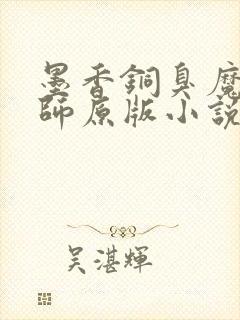 墨香銅臭魔
師原版小說
吴湛輝